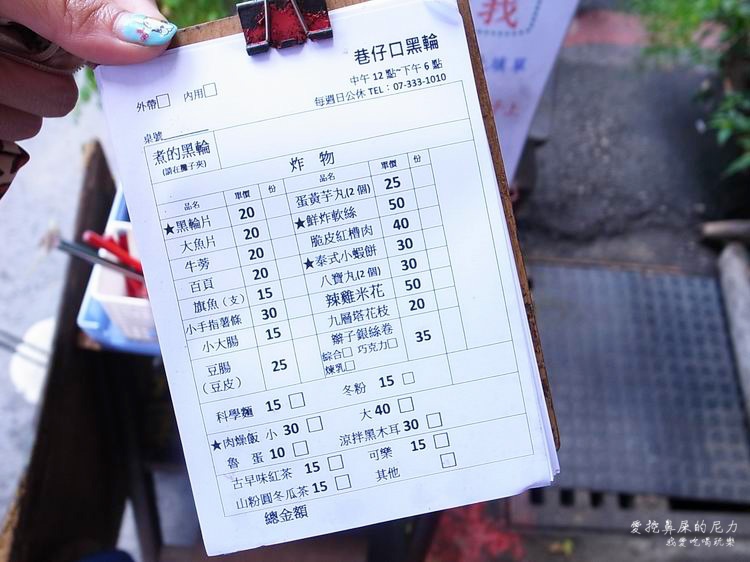 我
巷仔口黑輪
中午 12 點~下午 6 點
每週日公休 TEL：07-333-1010
外帶□ 內用□
桌號
煮的黑輪
(請在攤子夾)
炸 物
品名 單價 份 品名 單價 份
★黑輪片 20 蛋黃芋丸(2 個) 25
大魚片 20 ★鮮炸軟絲 50
牛蒡 20 脆皮紅槽肉 40
百頁 20 ★泰式小蝦餅 30
旗魚（支） 15 八寶丸(2 個) 30
小手指薯條 30 辣雞米花 50
小大腸 15 九層塔花枝 20
豆腸（豆皮） 25 辮子銀絲卷 35
綜合□ 巧克力□
煉乳□
科學麵 15 □ 冬粉 15 □
★肉燥飯 小 30 □ 大 40 □
魯 蛋 10 □ 涼拌黑木耳 30 □
古早味紅茶 15 □ 可樂 15 □
山粉圓冬瓜茶 15 □ 其他 □
總金額
愛挖鼻屎的尼力
我愛吃喝玩樂